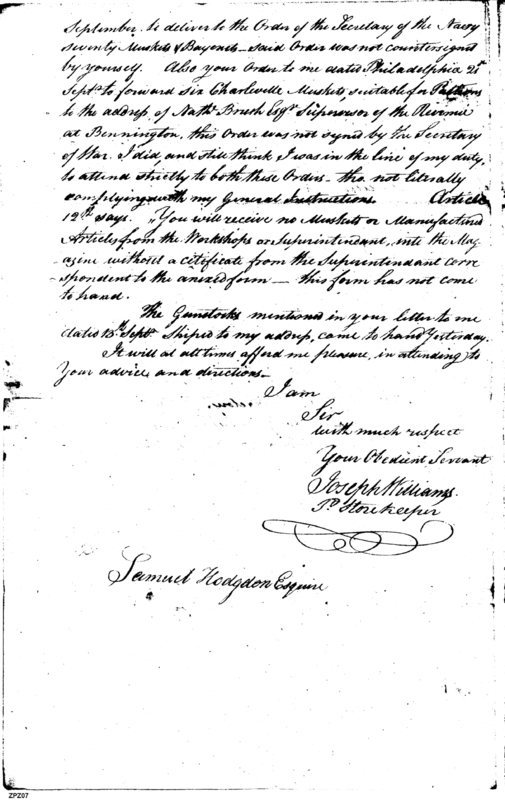 September. to deliver to the Order of the Secretary of the Navy
seventy Muskets & Bayonets - said Order was not countersigned
by yourself. Also your Order to me dated Philadelphia 25
Sept.r to forward six Charleville Muskets, suitable for Patterns
to the address of Nath.l Brush Esq.r Supervisor of the Revenue
at Bennington, this Order was not signed by the Secretary
of War. I did, and still think I was in the line of my duty,
to attend strictly to both these Orders - tho not literally
complying with my General Instructions. Article
12th says. "You will receive no Muskets or Manufactured
Articles from the Workshops or Superintendant, into the Mag
-azine without a certificate from the Superintendant corre
-spondent to the anexed form — this form has not come
to hand.
The Gunstocks mentioned in your letter to me
dated 13th Sept.r Shiped to my address, came to hand Yesterday.
It will at all times afford me pleasure, in attending to
Your advice, and directions —
I am
Sir
with much respect
Your Obedient Servant
Joseph Williams.
P. Storekeeper
Samuel Hodgdon Esquire
ZPZ07